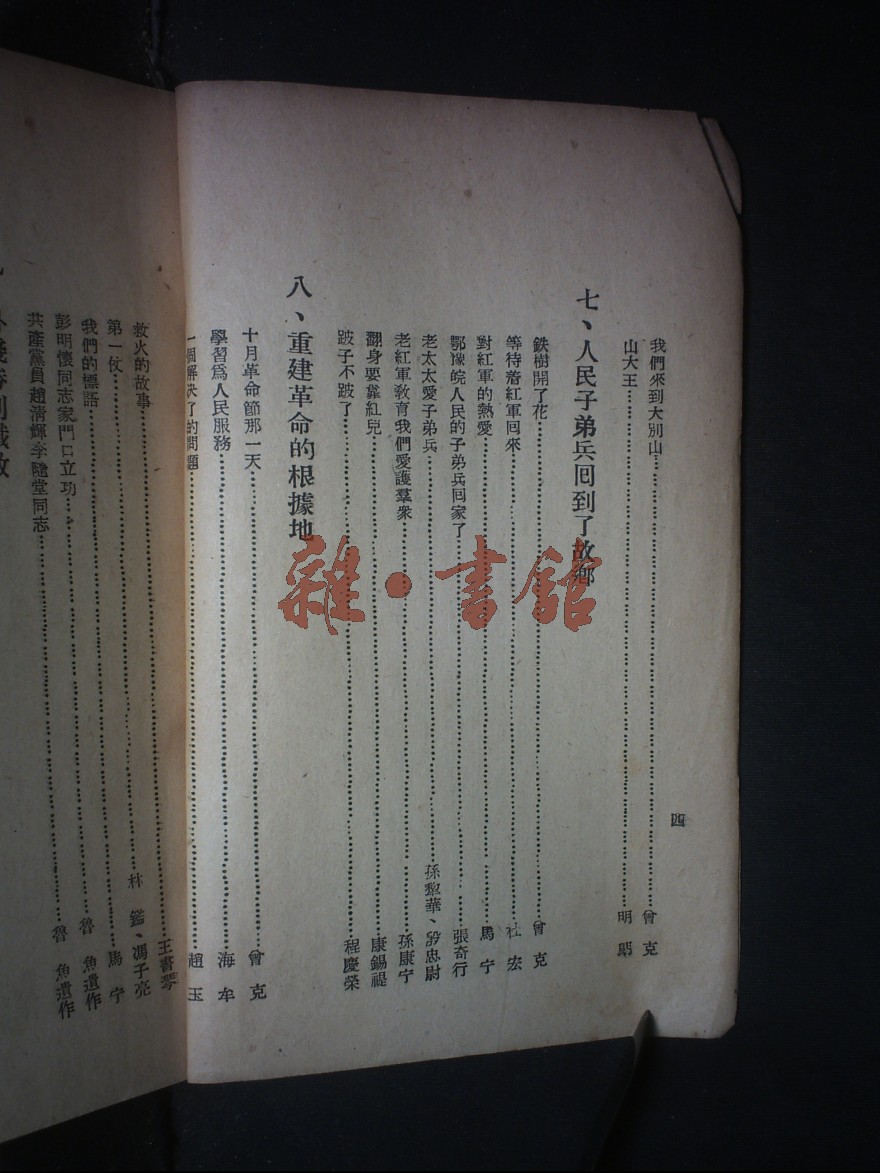 我們來到大別山……曾克
山大王……明 照
七、人民子弟兵囘到了故鄉
鉄樹開了花……曾克
等待着紅軍囘來……杜宏
對紅軍的熱愛……馬宁
鄂豫皖人民的子弟兵囘家了……張奇行
老太太愛子弟兵……孫犂華、段忠尉
老紅軍敎育我們愛護羣衆……孫康宁
翻身要靠紅兒……康錫禔
跛子不跛了……程慶榮
八、重建革命的根據地
十月革命節那一天……曾克
學習爲人民服務……海牟
一個解決了的問題……趙玉
四
救火的故事……林 鑑、馮子亮
第一仗……馬宁
我們的標語……魯 魚遺作
彭明懷同志家門口立功……魯 魚遺作
共產黨員趙淸輝李隨堂同志
王書琴
雜·書館